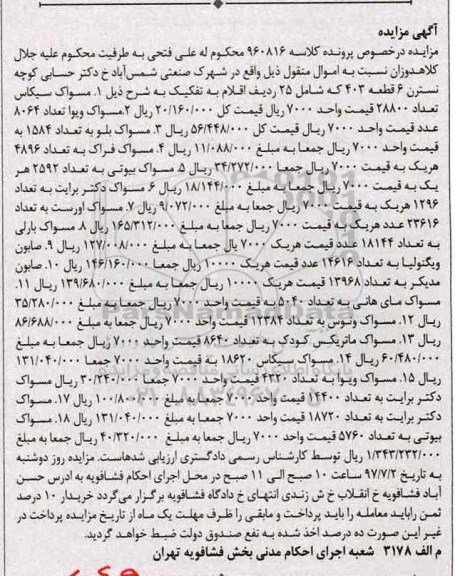 آگهی مزایده
مزایده درخصوص پرونده کلاسه ۹۶۰۸۱۶ محکوم له علی فتحی به طرفیت محکوم علیه جلال
کلاهدوزان نسبت به اموال منقول ذیل واقع در شهرک صنعتی شمس‌آباد خ دکتر حسابی کوچه
نسترن ۶ قطعه ۴۰۳ که شامل ۲۵ ردیف اقلام به تفکیک به شرح ذیل ۱. مسواک سیکاس
تعداد ۲۸۸۰۰ قیمت واحد ۷۰۰۰ ریال قیمت کل ۲۰/۱۶۰/۰۰۰ ریال ۲.مسواک ویوا تعداد ۸۰۶۴
عدد قیمت واحد ۷۰۰۰ ریال قیمت کل ۵۶/۴۴۸/۰۰۰ ریال ۳. مسواک بلو به تعداد ۱۵۸۴ به
قیمت واحد ۷۰۰۰ ریال جمعا به مبلغ ۱۱/۰۸۸/۰۰۰ ریال ۴. مسواک فراک به تعداد ۴۸۹۶
هریک به قیمت ۷۰۰۰ ریال جمعا ۳۴/۲۷۲/۰۰۰ ریال ۵. مسواک بیوتی به تعداد ۲۵۹۲ هر
یک به قیمت ۷۰۰۰ ریال جمعا به مبلغ ۱۸/۱۴۴/۰۰۰ ریال ۶. مسواک دکتر برایت به تعداد
۱۲۹۶ هریک به قیمت ۷۰۰۰ ریال جمعا به مبلغ ۹/۰۷۲/۰۰۰ ریال ۷. مسواک اورست به تعداد
۲۳۶۱۶ عدد هریک به قیمت ۷۰۰۰ ریال جمعا به مبلغ ۱۶۵/۳۱۲/۰۰۰ ریال ۸. مسواک بارلی
به تعداد ۱۸۱۴۴ عدد قیمت هریک ۷۰۰۰ ریال جمعا به مبلغ ۱۲۷/۰۰۸/۰۰۰ ریال ۹. صابون
ویگتولیا به تعداد ۱۴۶۱۶ عدد قیمت هریک ۱۰۰۰۰ ریال جمعا ۱۴۶/۱۶۰/۰۰۰ ریال ۱۰. صابون
مدیکر به تعداد ۱۳۹۶۸ قیمت هریک ۱۰۰۰۰ ریال جمعا به مبلغ ۱۳۹/۶۸۰/۰۰۰ ریال ۱۱.
مسواک مای هانی به تعداد ۵۰۴۰ به قیمت واحد ۷۰۰۰ ریال جمعا به مبلغ ۳۵/۲۸۰/۰۰۰
ریال ۱۲. مسواک ونوس به تعداد ۱۲۳۸۴ قیمت واحد ۷۰۰۰ ریال جمعا به مبلغ ۸۶/۶۸۸/۰۰۰
ریال ۱۳. مسواک ماتریکس کودک به تعداد ۸۶۴۰ قیمت واحد ۷۰۰۰ ریال جمعا به مبلغ
۶۰/۴۸۰/۰۰۰ ریال ۱۴. مسواک سیکاس ۱۸۶۲۰ به قیمت واحد ۷۰۰۰ جمعا ۱۳۱/۰۴۰/۰۰۰
ریال ۱۵. مسواک ویوا به تعداد ۴۳۲۰ قیمت واحد ۷۰۰۰ جمعا ۳۰/۲۴۰/۰۰۰ ریال مسواک
دکتر برایت به تعداد ۱۴۴۰۰ قیمت واحد ۷۰۰۰ جمعا به مبلغ ۱۰۰/۸۰۰/۰۰۰ ریال ۱۷. مسواک
دکتر برایت به تعداد ۱۸۷۲۰ قیمت واحد ۷۰۰۰ جمعا به مبلغ ۱۳۱/۰۴۰/۰۰۰ ریال ۱۸. مسواک
بیوتی به تعداد ۵۷۶۰ قیمت واحد ۷۰۰۰ ریال جمعا به مبلغ ۴۰/۳۲۰/۰۰۰ ریال جمعا به مبلغ
۱/۳۴۳/۲۳۲/۰۰۰ ریال توسط کارشناس رسمی دادگستری ارزیابی شدهاست. مزایده روز دوشنبه
به تاریخ ۹۷/۷/۲ ساعت ۱۰ صبح الی ۱۱ صبح در محل اجرای احکام فشافویه به آدرس حسن
آباد فشافویه خ انقلاب خ ش زندی انتهای خ دادگاه فشافویه برگزار می‌گردد خریدار ۱۰ درصد
ثمن راباید معامله را باید پرداخت و مابقی را ظرف مهلت یک ماه از تاریخ مزایده پرداخت در
غیر این صورت ده درصد اخذ شده به نفع صندوق دولت ضبط خواهد گردید.
م الف ۳۱۷۸ شعبه اجرای احکام مدنی بخش فشافویه تهران